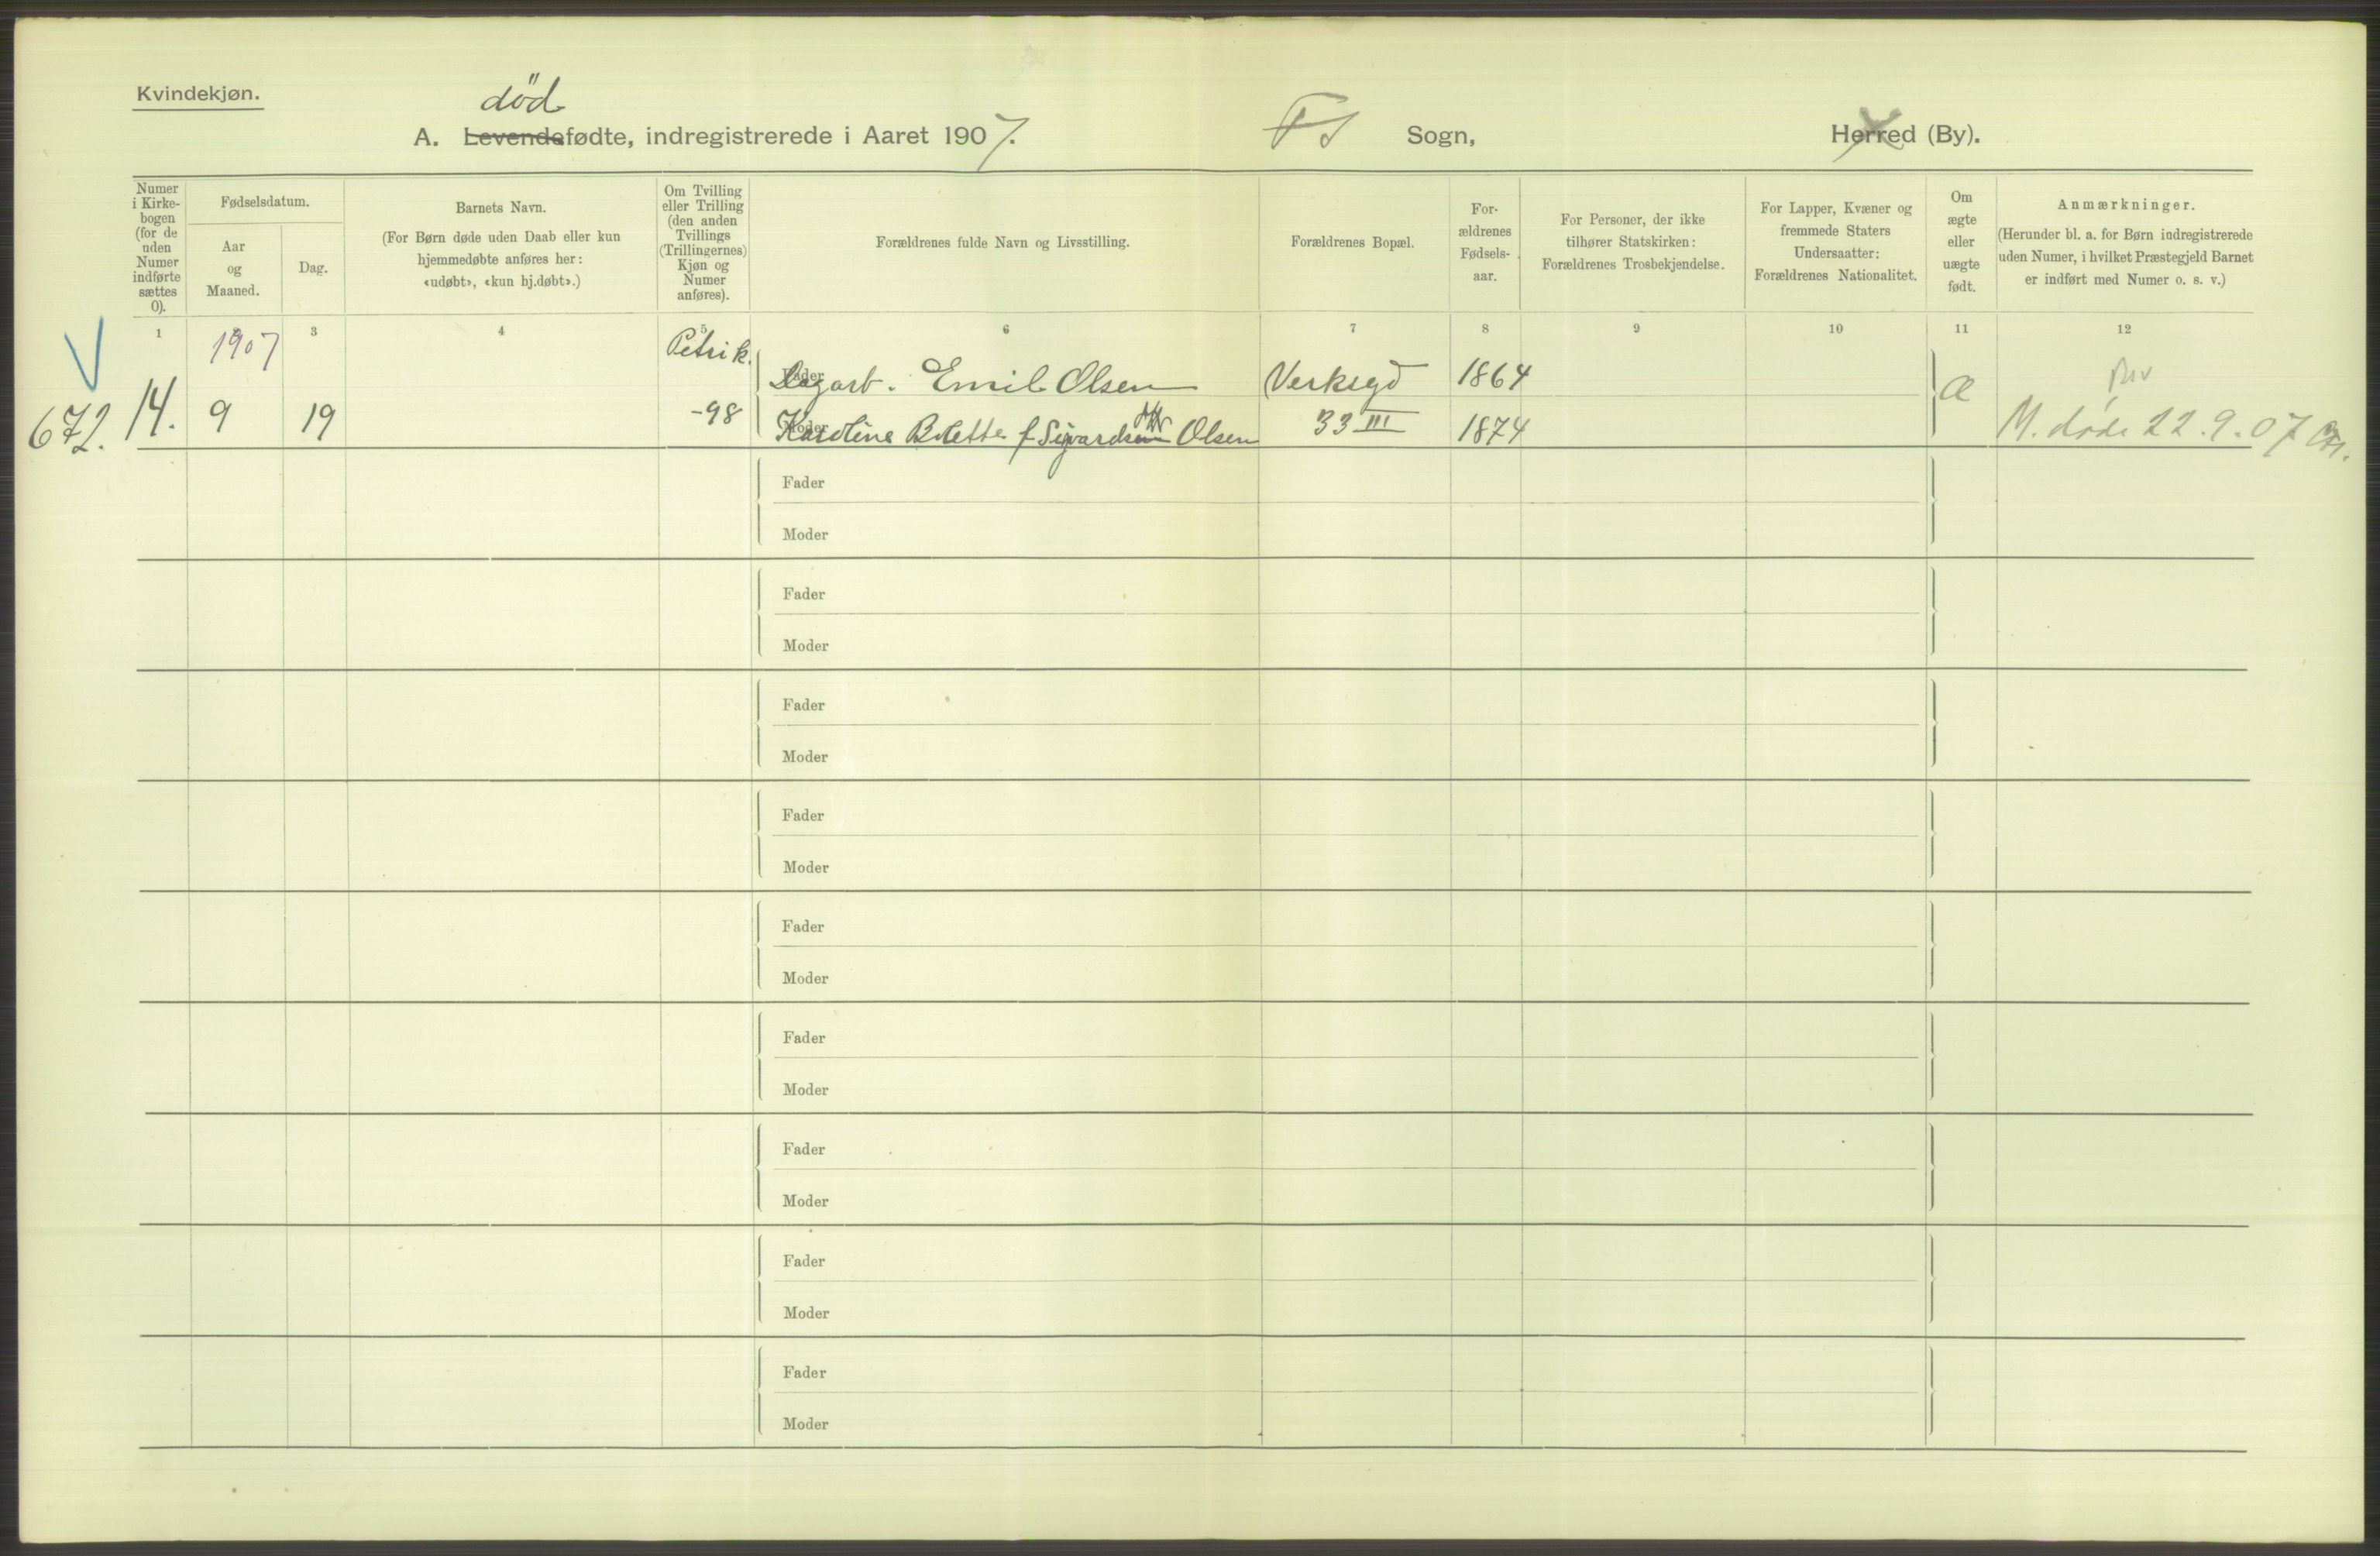 Kvindekjøn.
død
A. Levendefødte, indregistrerede i Aaret 1907. Sogn, Herred (By).
Numer i Kirke-bogen (for de uden Numer indførte sættes 0).
Fødselsdatum.
Aar og Maaned.
Dag.
Barnets Navn.
(For Børn døde uden Daab eller kun
hjemmedøbte anføres her:
«udøbt», «kun hj.døbt».)
Om Tvilling
eller Trilling
(den anden
Tvillings
(Trillingernes)
Kjøn og
Numer
anføres).
Forældrenes fulde Navn og Livsstilling.
Forældrenes Bopæl.
For-
ældrenes
Fødsels-
aar.
For Personer, der ikke
tilhører Statskirken:
Forældrenes Trosbekjendelse.
For Lapper, Kvæner og
fremmede Staters
Undersaatter:
Forældrenes Nationalitet.
Om
ægte
eller
uægte
født.
Anmærkninger.
(Herunder bl. a. for Børn indregistrerede
uden Numer, i hvilket Præstegjeld Barnet
er indført med Numer o. s. v.)
1 2 3 4 5 6 7 8 9 10 11 12
1907 Petrik.
Fader Dagarb. Emil Olsen Verksgd 1864 Æ
672. 14. 9 19 -98 Moder Karoline Bolette f Sivardsen Olsen 33 III 1874 M. døde 22.9.07
Fader
Moder
Fader
Moder
Fader
Moder
Fader
Moder
Fader
Moder
Fader
Moder
Fader
Moder
Fader
Moder
Fader
Moder